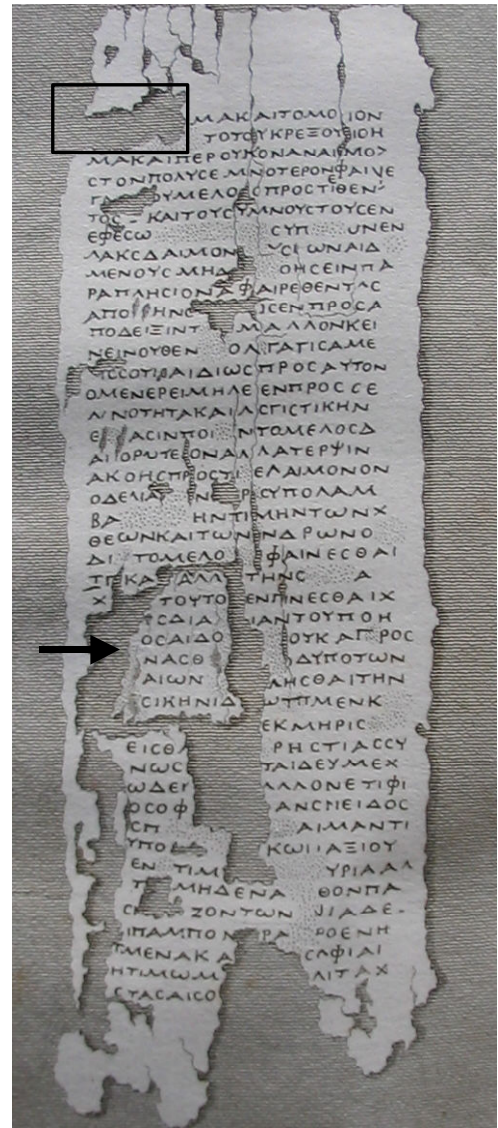 ΜΑΚΑΙΤΟΜΟ ΙΟΝ
ΤΟΤΟΥΚΡΕΞΟΥ ΙΟΗ
ΜΑΚΑΙΠΕΡΟΥΚΟΝΑΝΑΡΜΟ>
CΤΟΝΠΟΛΥCΕΜΝΟΤΕΡΟΝΦΑΙΝΕ
ΟΥΜΕΛΟC ΠΡΟCΤΙΘΕΝ
ΤΟC - ΚΑΙΤΟΥCΥΜΝΟΥCΤΟΥCΕΝ
ΕΦΕCΩ CΥΠ ΟΝΕΝ
ΛΑΚCΔΑΙΜΟΝ ΩΝΑΙΔ
ΜΕΝΟΥC ΜΗΔ ΟΗCΕΙΝΠΑ
ΡΑΠΛΗCΙΟΝΑ ΦΑΙΡΕΘΕΝΤΑC
ΑΠΟ ΗΝC CΕΝΠΡΟCΑ
ΠΟΔΕΙΞΙΝΤ ΜΑΛΛΟΝΚΕΙ
ΝΕΙΝΟΥΘΕΝ ΟΛΓΑΓΙCΑΜΕ
ΑΙΔΙΩCΠΡΟCΑΥΤΟΝ
ΟΜΕΝΕΡΕΙΜΗΛΕ ΕΝΠΡΟCCΕ
ΝΟΤΗΤΑΚΑΙ ΛCΓΙCΤΙΚΗΝ
Ε ΑCΙΝΠΟΙ ΝΤΩΜΕΛΟCΔ
ΑΙ ΟΡΩΤΕΟΝΑΛΛΑΤΕΡΨΙΝ
ΑΚΟΗCΠΡΟCΤΙ ΕΛΑΙΜΟΝΟΝ
ΟΔΕΛΙΑ ΝΕ CΥΠΟΛΑΜ
ΒΑ ΗΝΤΙΜΗΝΤΩΝΧ
ΘΕΩΝΚΑΙΤΩΝ ΝΔΡΩΝΟ
ΔΙ ΤΟΜΕΛΟ ΦΑΙΝΕCΘΑΙ
ΚΑ ΑΛΛ ΤΗΝC Α
Χ ΤΟΥΤΟ ΕΝΠΝΕCΘΑΙΧ
CΔΙΑ ΙΑΝΤΟΥΠΟΗ
ΟCΑΙΔΟ ΟΥΚΑ ΡΟC
ΝΑCΘ ΔΥΠΟΤΩΝ
ΑΙΩΝ ΗCΘΑΙΤΗΝ
CΙΚΗΝΙΔ ΜΕΝΚ
ΕΚΜΗΡΙC
ΕΙCΘ ΡΗCΤΙΑCCΥ
ΝΩC ΤΑΙΔΕΥΜΕΧ
ΩΔΕ ΛΛΟΝΕΤΙΦΙ
ΟCΟΦ ΑΝCΜΕΙΔΟC
CΠ ΑΙΜΑΝΤΙ
ΥΠΟ ΚΩΙ ΑΞΙΟΥ
ΕΝ ΤΙΜ ΥΡΙΑΑΛ
Τ ΜΗΔΕΝΑ ΘΟΝΠΑ
ΖΟΝΤΩΝ ΙΑΔΕ-
ΙΠΑΜΠΟ ΡΑ ΡΟΕΝΗ
ΤΜΕΝΑΚΑ CΑΦΙΑΙ
ΗΤΙΜΩΜ ΛΙΤΑΧ
CΤΑCΑΙCΟ